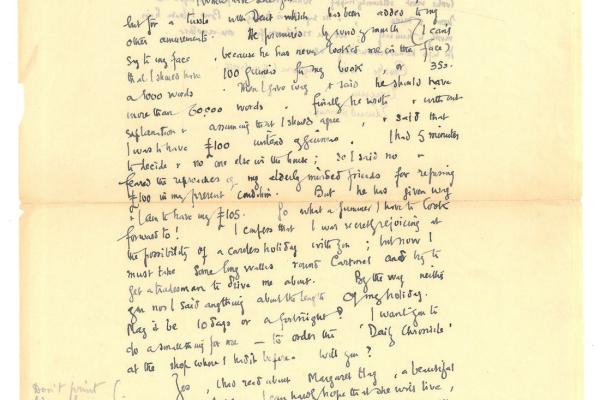 but for a tussle with Dent which has been added to my
other amusements. He promised by word of mouth (I can't
say to my face, because he has never looked me in the face)
that I should have 100 guineas for my book, or 35s.
a 1000 words. Then I gave way & said he should have
more than 60,000 words. Finally he wrote & without
explanation & assuming that I should agree, & said that
I was to have £100 instead of guineas. I had 5 minutes
to decide & no one else in the house; so I said no &
feared the reproaches of my elderly minded friends for refusing
£100 in my present condition. But he has given way
& I am to have my £105. So what a summer I have to look
forward to! I confess that I was secretly rejoicing at
the possibility of a careless holiday with you; but now I
must take some long walks round and try to
get a tradesman to drive me about. By the way neither
you nor I said anything about the length of my holiday.
May it be 10 days or a fortnight? I want you to
do a small thing for me — to order the 'Daily Chronicle'
at the shop where I had it before. Will you?
Yes, I had read about Margaret Hay, a beautiful
Don't print
I can hardly hope that she will live,